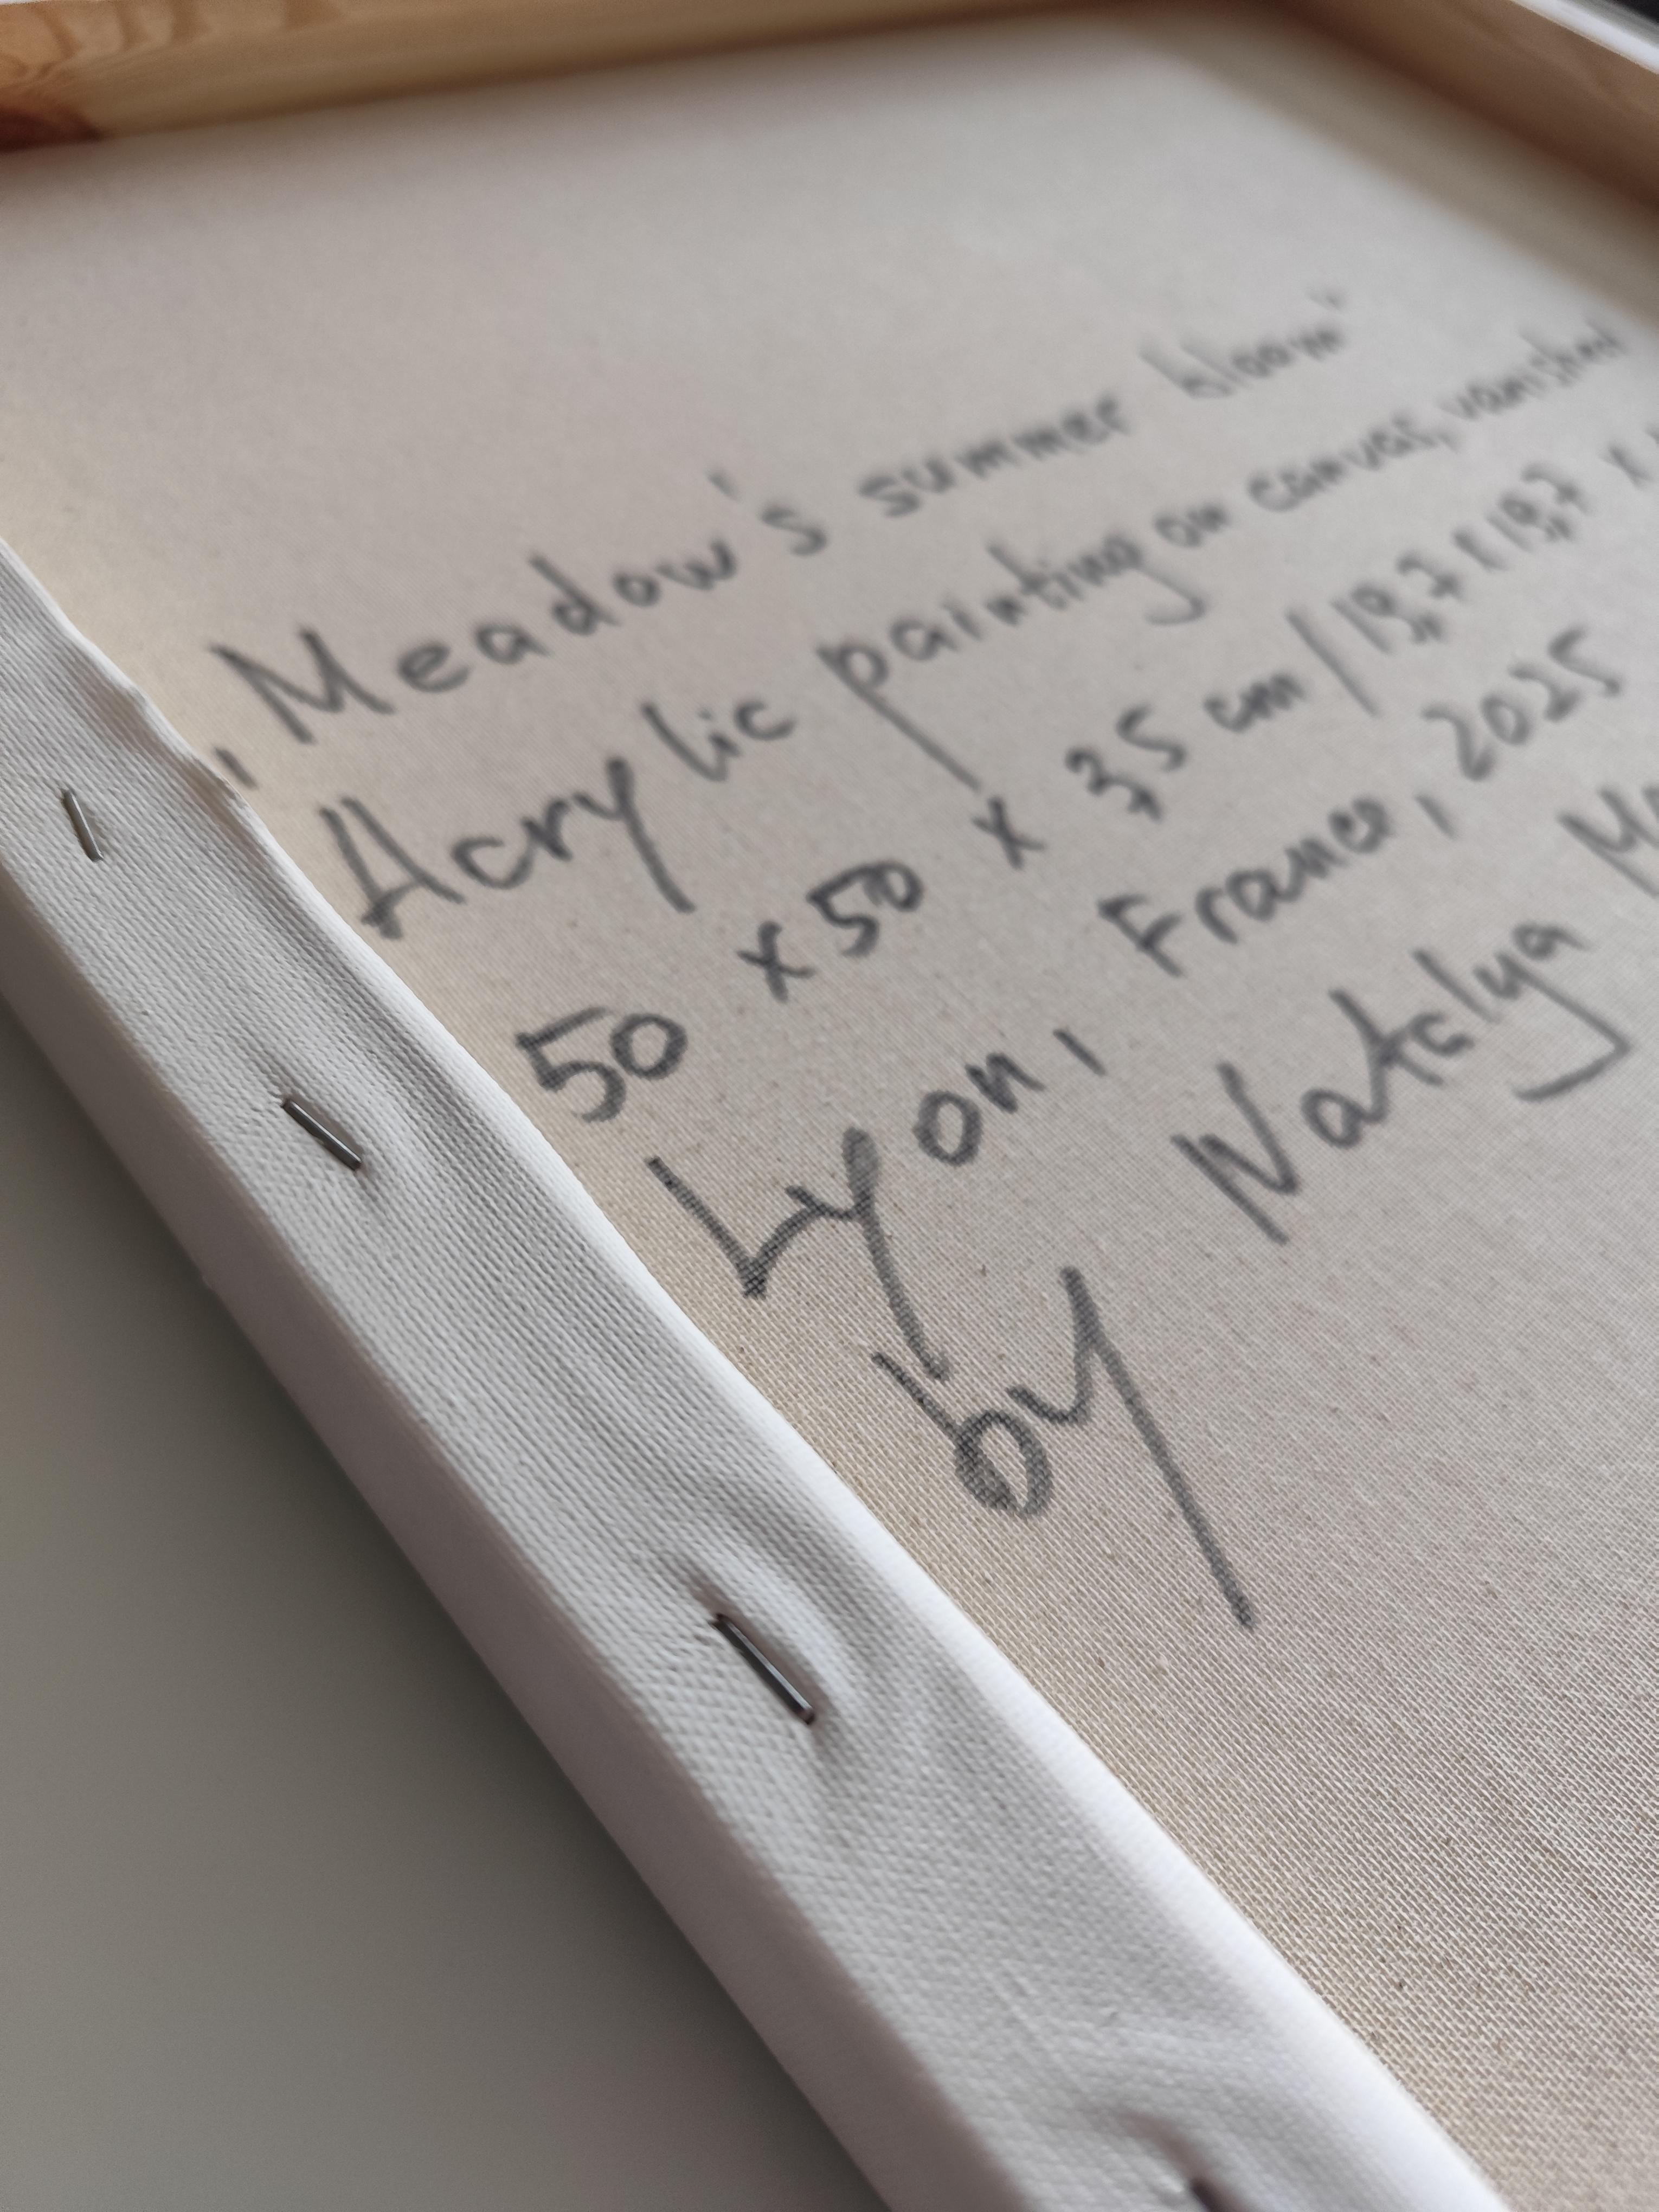 „Meadow's summer bloom"
Acrylic painting on canvas, vanished
50 x 50 x 3,5 cm / 19,7 x 19,7 x
Lyon, France, 2025
by Natalya